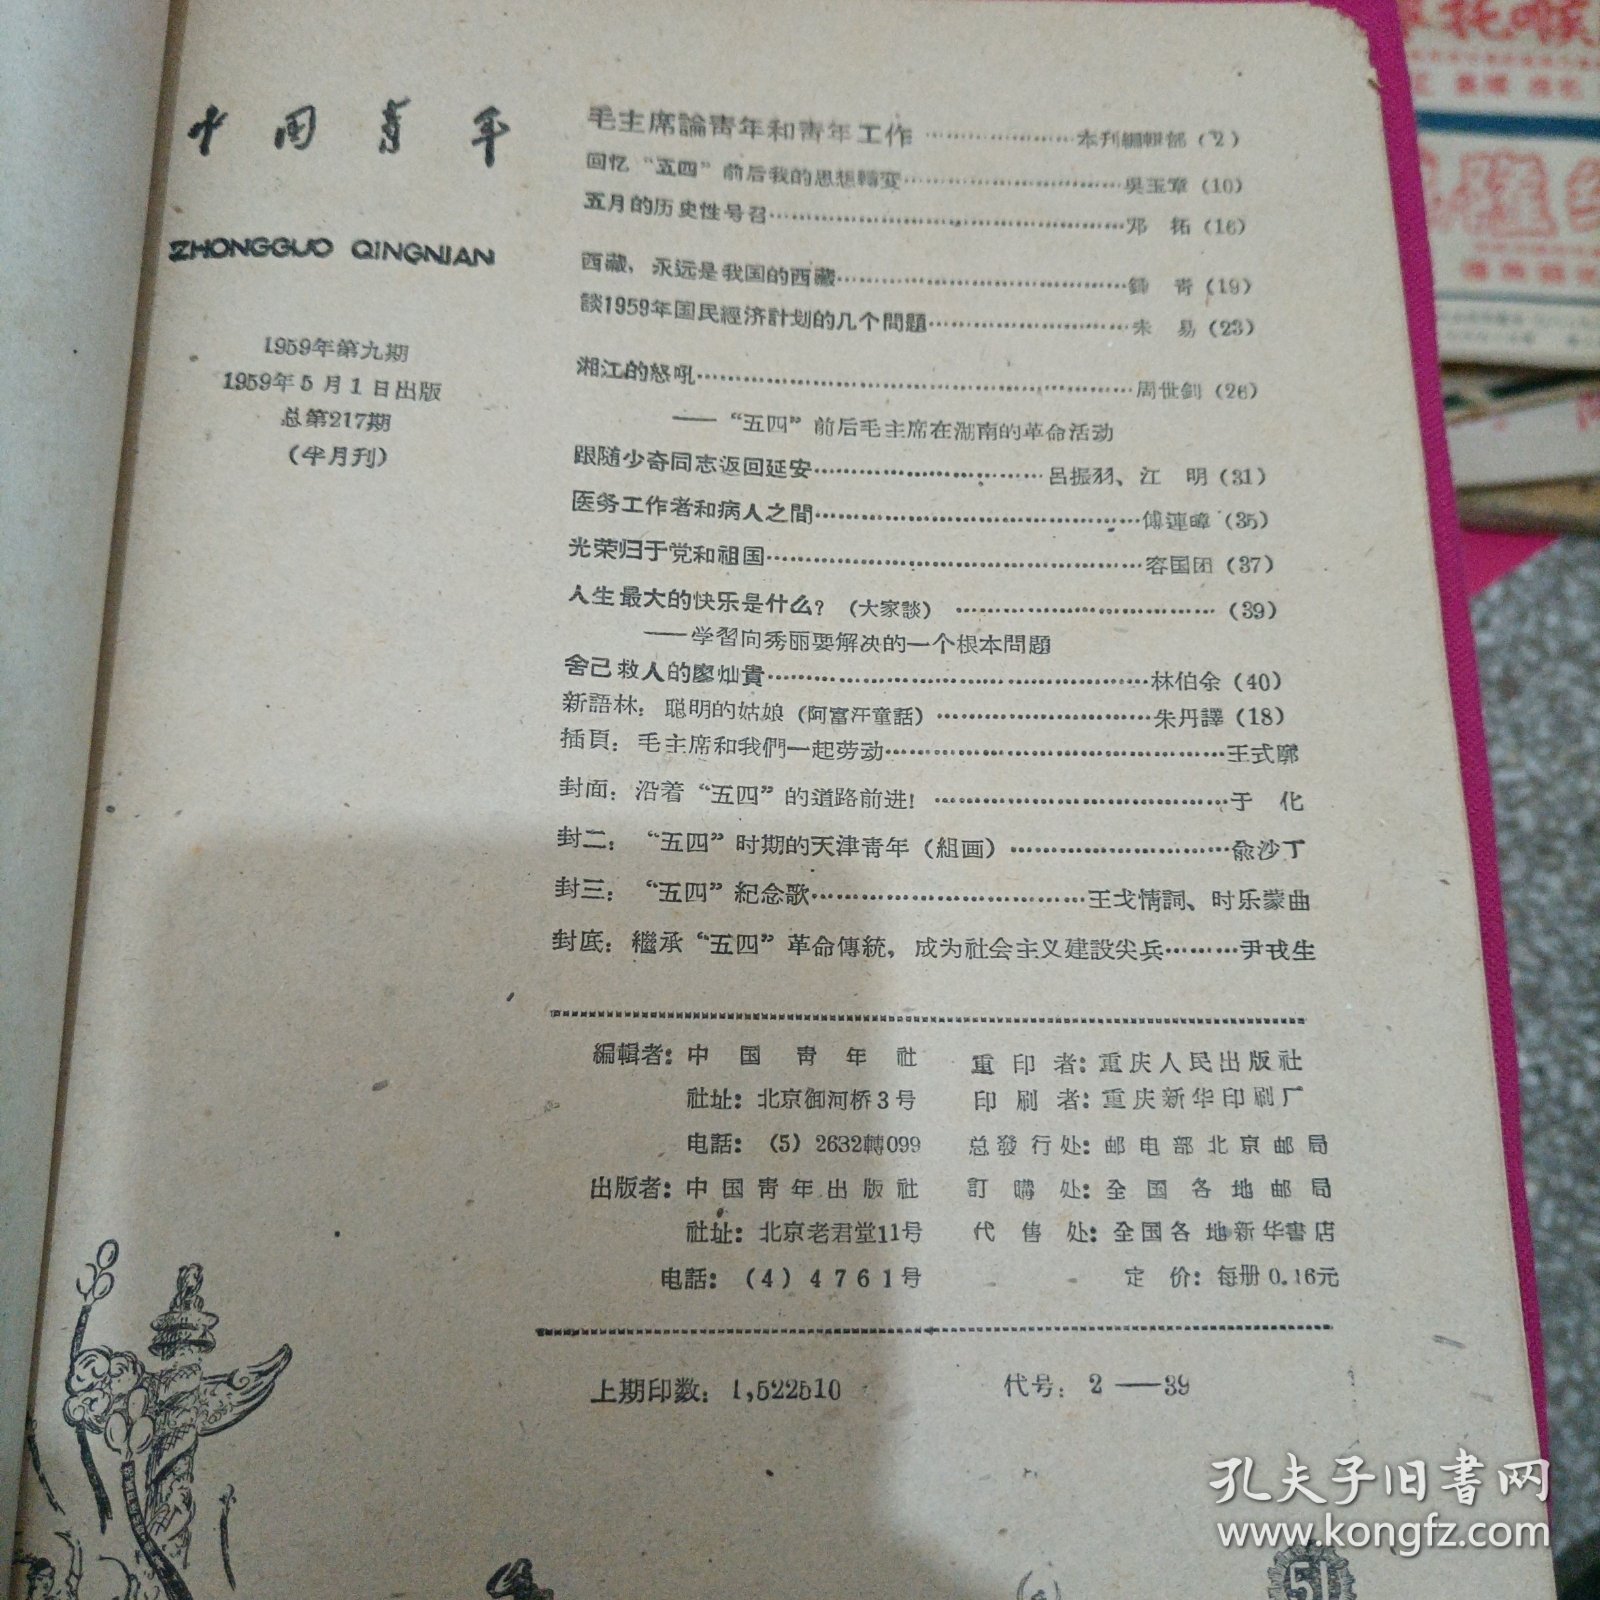 中国青年
ZHONGGUO QINGNIAN
1959年第九期
1959年5月1日出版
总第217期
(半月刊)
毛主席論靑年和靑年工作……………………本刊編輯部(2)
回忆“五四”前后我的思想轉变……………………吳玉章(10)
五月的历史性号召……………………邓 拓(16)
西藏,永远是我国的西藏……………………鋒 青(19)
談1959年国民經济計划的几个問題……………………朱 易(23)
湘江的怒吼……………………周世釗(26)
——“五四”前后毛主席在湖南的革命活动
跟随少奇同志返回延安……………………呂振羽、江 明(31)
医务工作者和病人之間……………………傅連暲(35)
光荣归于党和祖国……………………容国团(37)
人生最大的快乐是什么?(大家談)……………………(39)
——学習向秀丽要解决的一个根本問題
舍己救人的廖灿貴……………………林伯余(40)
新語林:聪明的姑娘(阿富汗童話)……………………朱丹譯(18)
插頁:毛主席和我們一起劳动……………………王式廓
封面:沿着“五四”的道路前进!……………………于 化
封二:“五四”时期的天津靑年(組画)……………………兪沙丁
封三:“五四”紀念歌……………………王戈情詞、时乐蒙曲
封底:繼承“五四”革命傳統,成为社会主义建設尖兵………尹戎生
編輯者:中国靑年社
社址:北京御河桥3号
电話:(5)2632轉099
出版者:中国靑年出版社
社址:北京老君堂11号
电話:(4)4761号
重印者:重庆人民出版社
印刷者:重庆新华印刷厂
总發行处:邮电部北京邮局
訂購处:全国各地邮局
代售处:全国各地新华書店
定价:每册0.16元
上期印数:1,522510
代号:2——39
孔夫子旧书网
www.kongfz.com
51